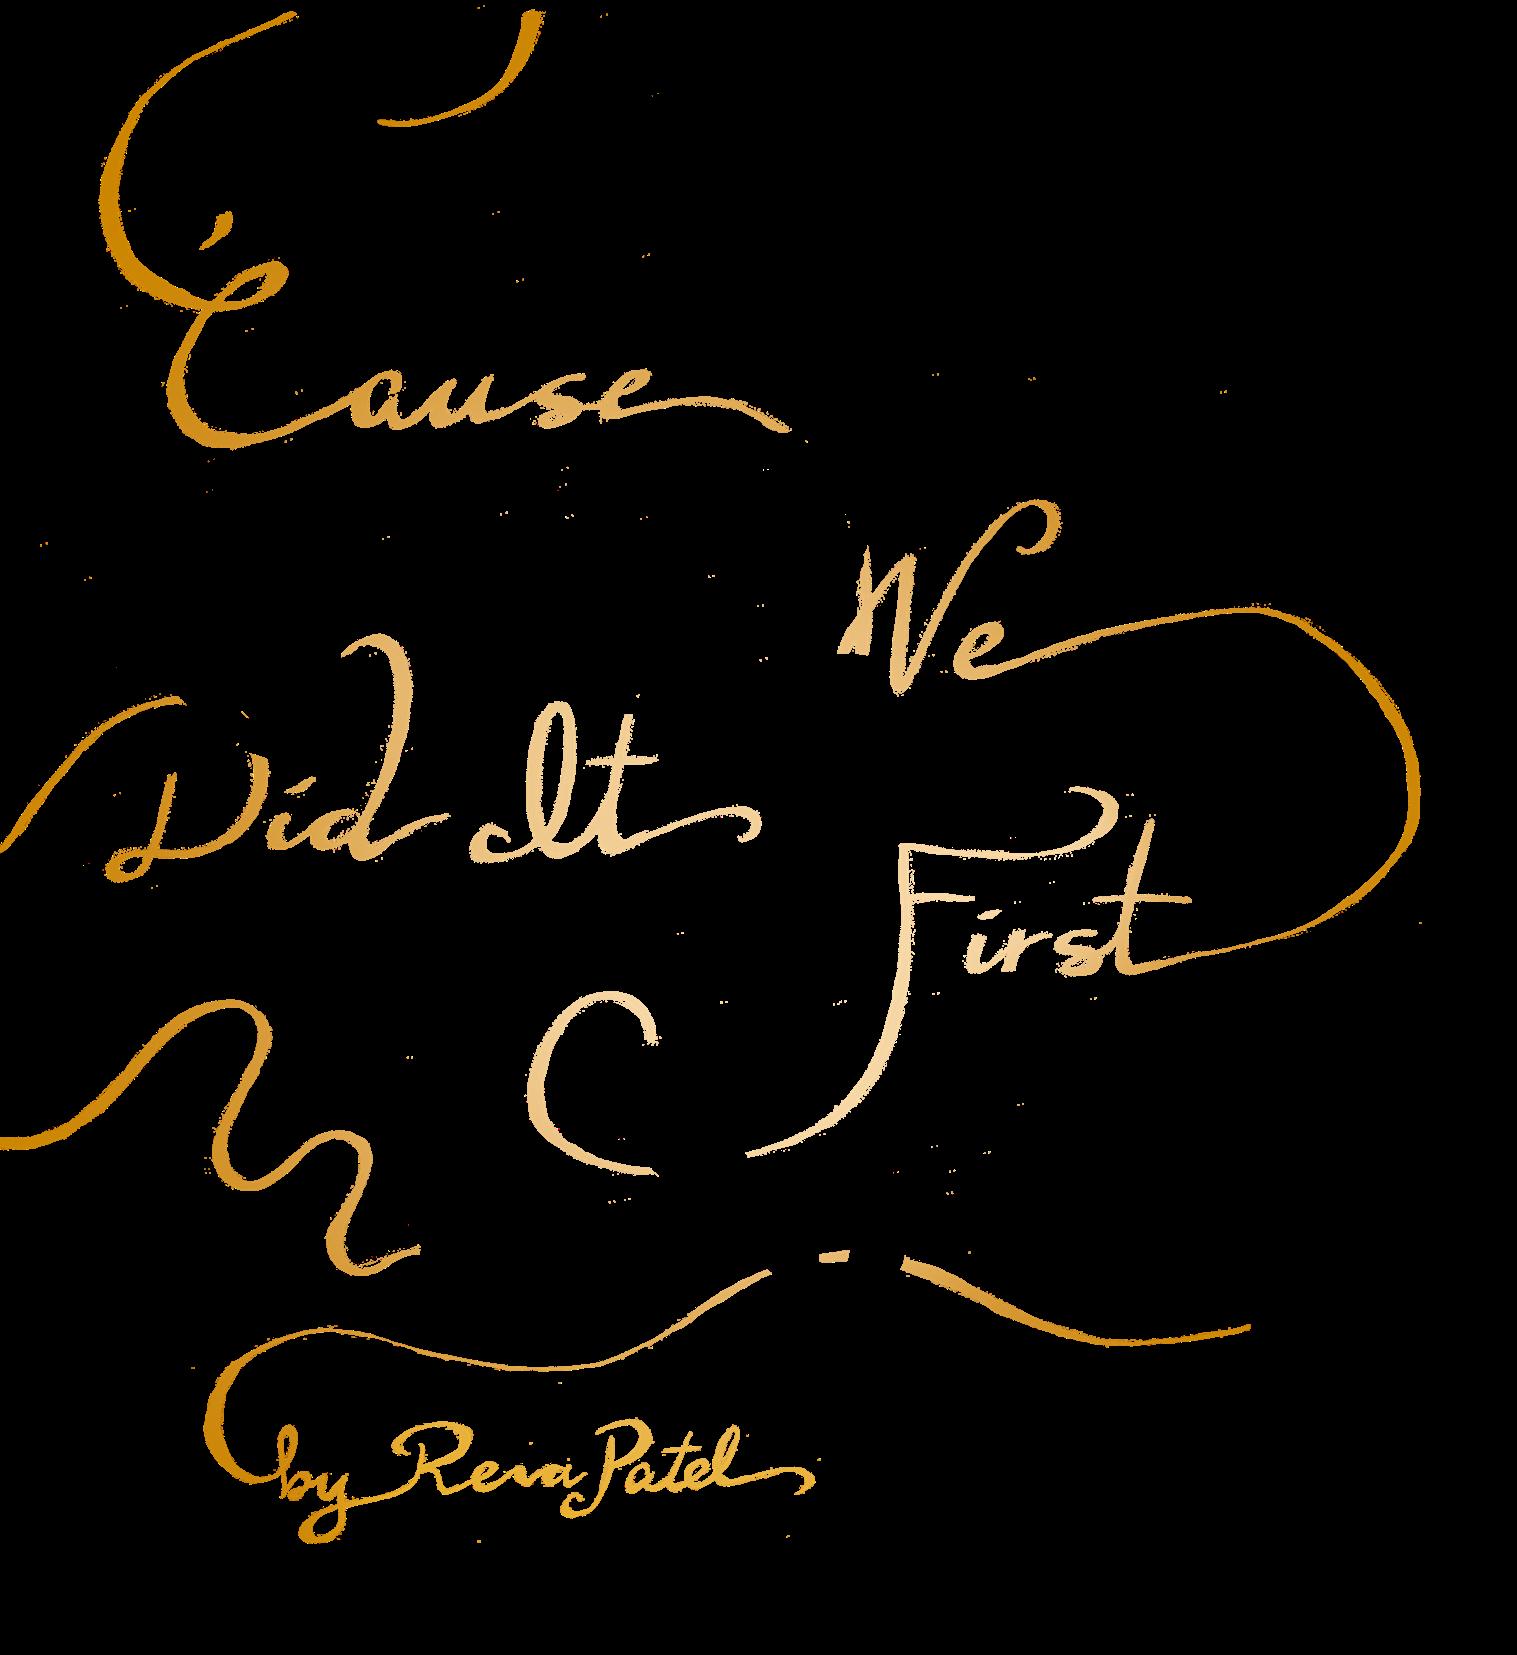 'Cause
We
Did It
First
by Reva Patel